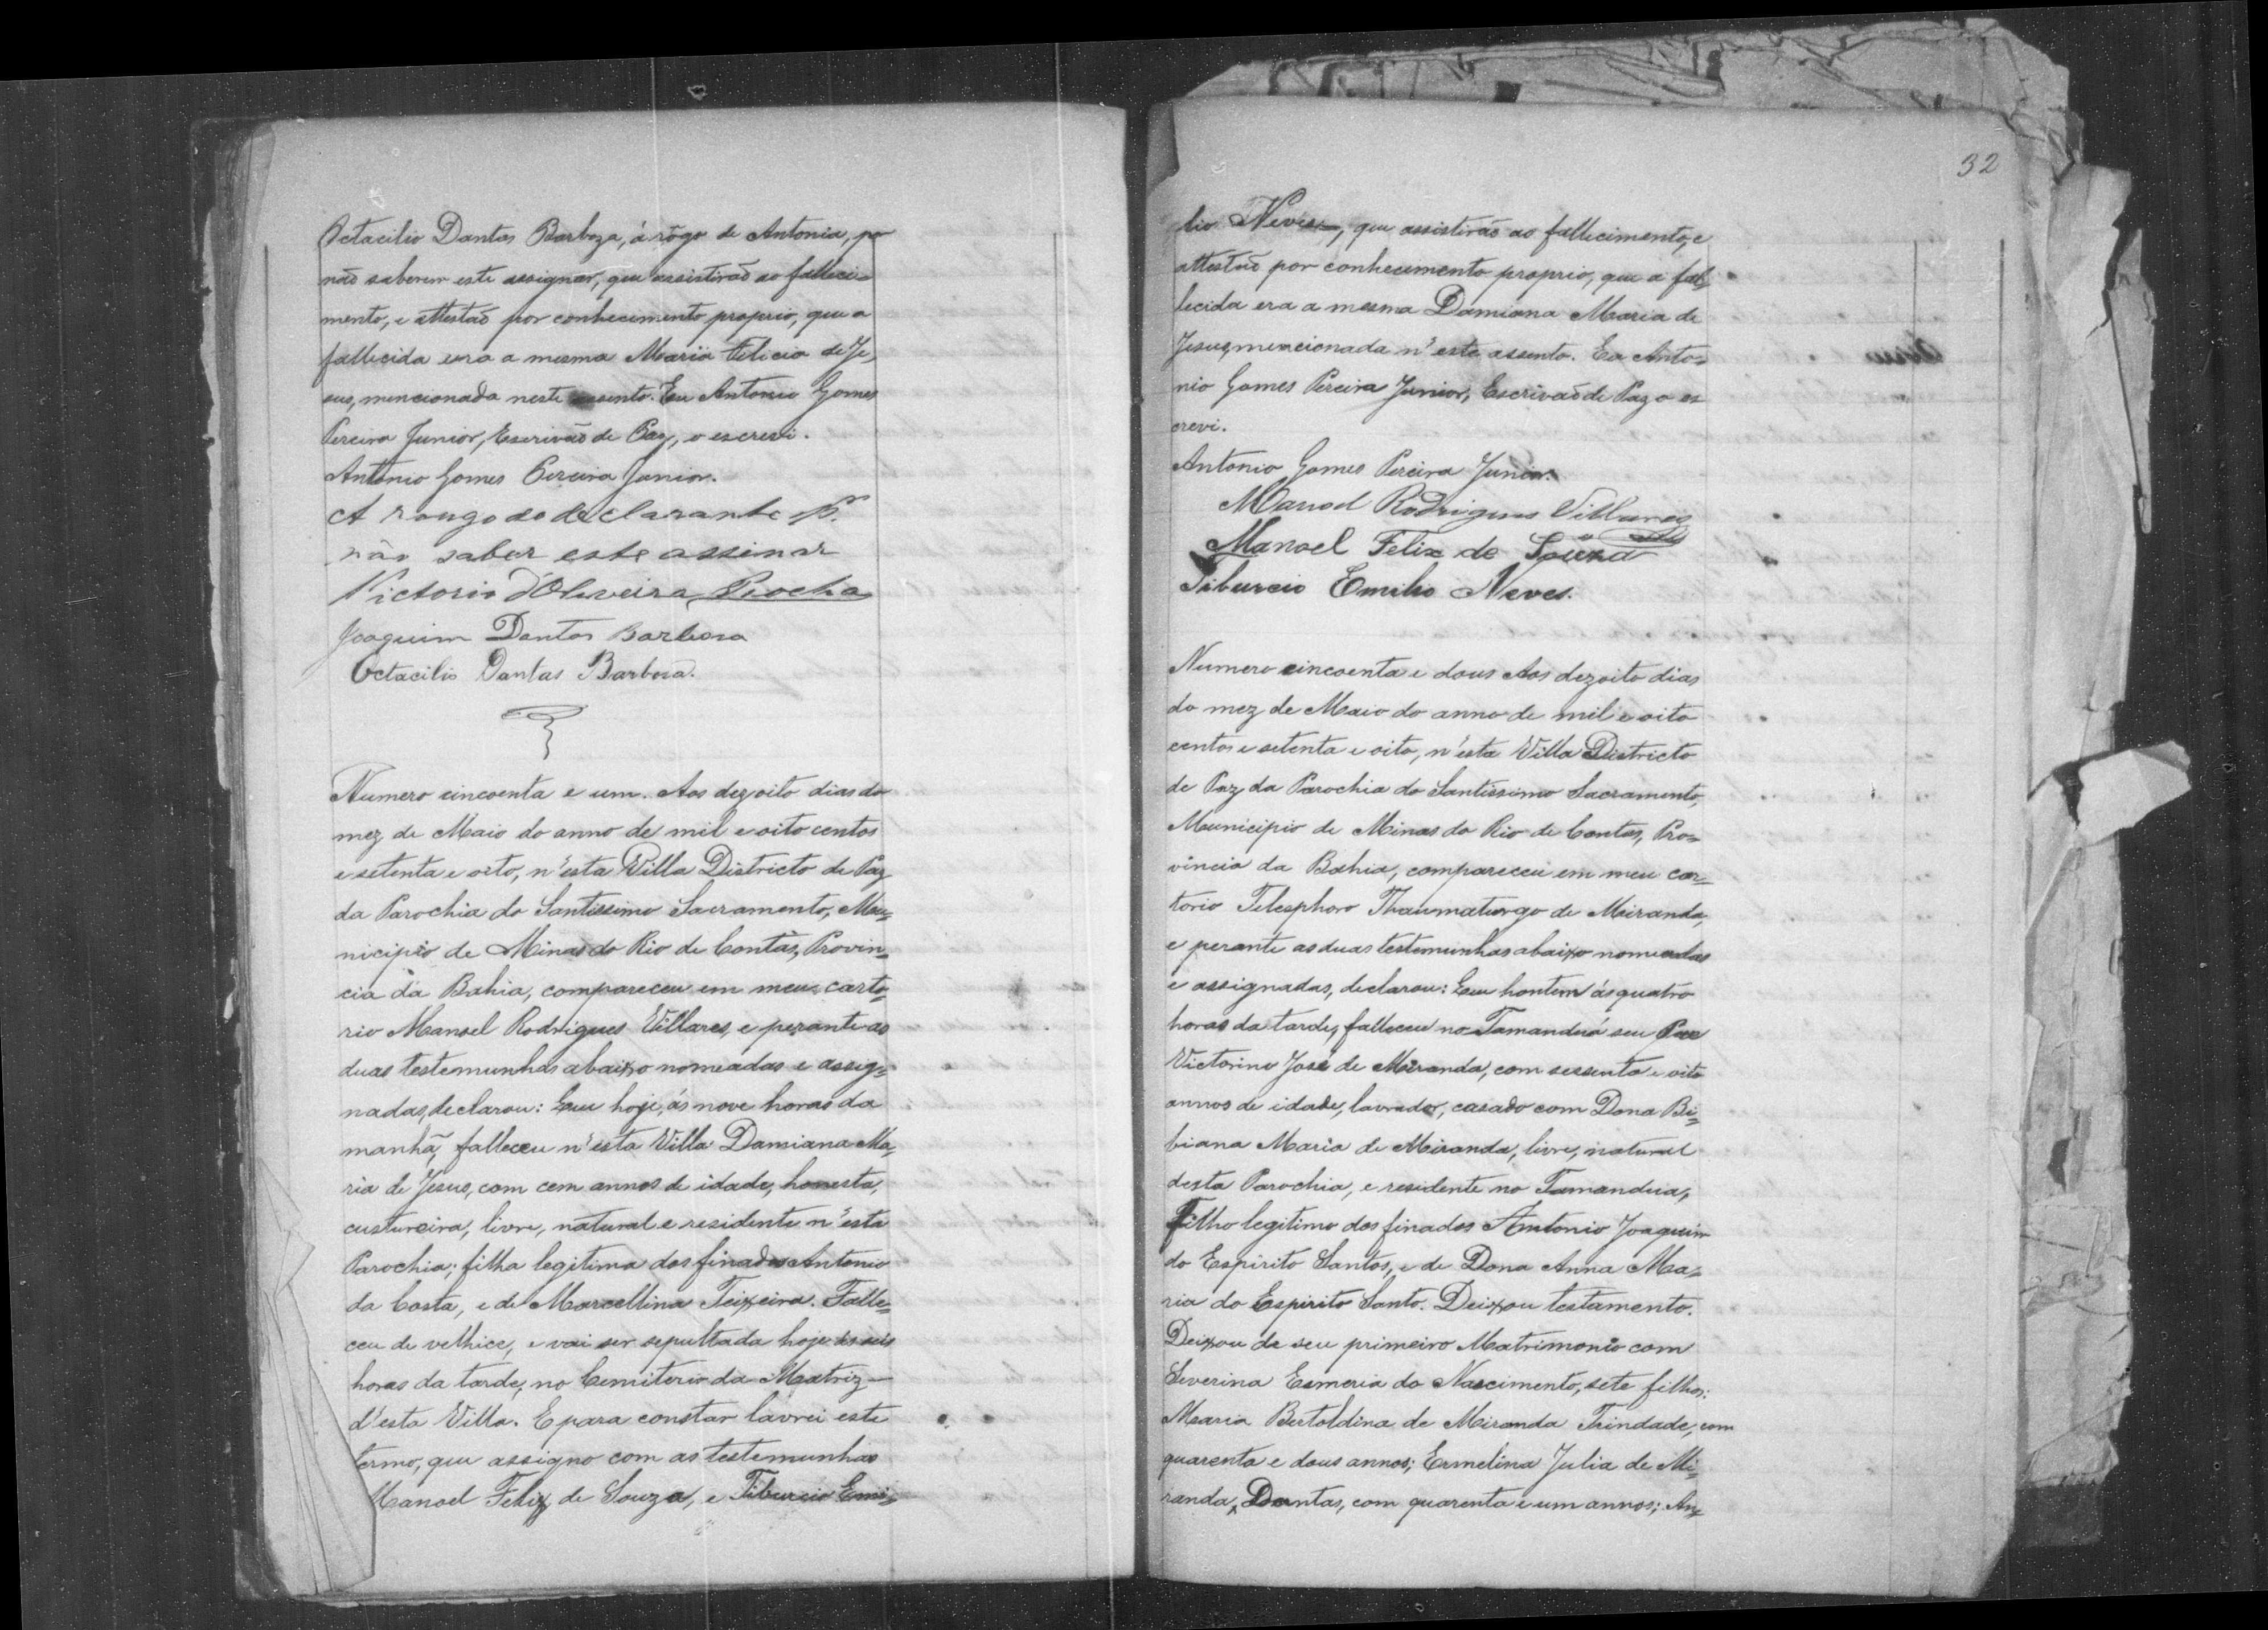 Octacilio Dantas Barboza, á rôgo de Antonia, por
não saberem este assignar, que assistirão ao falleci-
mento, e attestão por conhecimento proprio, que a
fallecida era a mesma Maria Felicia de Je-
sus, mencionada neste assento. Eu Antonio Gomes
Pereira Junior, Escrivão de Paz, o escrevi.
Antonio Gomes Pereira Junior.
A rougo do declarante P.
não saber este assinar
Victorio d'Oliveira Rocha
Joaquim Dantas Barbosa
Octacilio Dantas Barbosa.
Numero cincoenta e um. Aos dezoito dias do
mez de Maio do anno de mil e oito centos
e setenta e oito, n'esta Villa Districto de Paz
da Parochia do Santissimo Sacramento, Mu-
nicipio de Minas do Rio de Contas, Provin-
cia da Bahia, compareceu em meu carto-
rio Manoel Rodrigues Villares, e perante as
duas testemunhas abaixo nomeadas e assig-
nadas, declarou: Que hoje, ás nove horas da
manhã, falleceu n'esta Villa Damiana Ma-
ria de Jesus, com cem annos de idade, honesta,
custureira, livre, natural e residente n'esta
Parochia; filha legitima dos finados Antonio
da Costa, e de Marcellina Teixeira. Falle-
ceu de velhice, e vai ser sepultada hoje ás seis
horas da tarde, no Cemiterio da Matriz
d'esta Villa. E para constar lavrei este
termo, que assigno com as testemunhas
Manoel Felix de Souza, e Tiburcio Emi-
32
lio Neves, que assistirão ao fallecimento, e
attestão por conhecimento proprio, que a fal-
lecida era a mesma Damiana Maria de
Jesus, mencionada n'este assento. Eu Anto-
nio Gomes Pereira Junior, Escrivão de Paz o es
crevi.
Antonio Gomes Pereira Junior.
Manoel Rodrigues Villares
Manoel Felix de Souza
Tiburcio Emilio Neves.
Numero cincoenta e dous Aos dezoito dias
do mez de Maio do anno de mil e oito
centos e setenta e oito, n'esta Villa Districto
de Paz da Parochia do Santissimo Sacramento,
Municipio de Minas do Rio de Contas, Pro-
vincia da Bahia, compareceu em meu car-
torio Telesphoro Thaumaturgo de Miranda,
e perante as duas testemunhas abaixo nomeadas
e assignadas, declarou: Que hontem ás quatro
horas da tarde, falleceu no Tamanduá seu Pae
Victorino José de Miranda, com sessenta e oito
annos de idade, lavrador, casado com Dona Bi-
biana Maria de Miranda, livre, natural
desta Parochia, e residente no Tamandua,
Filho legitimo dos finados Antonio Joaquim
do Espirito Santos, e de Dona Anna Ma-
ria do Espirito Santo. Deixou testamento.
Deixou de seu primeiro Matrimonio com
Severina Esmeria do Nascimento, sete filhos:
Maria Bertoldina de Miranda Trindade, com
quarenta e dous annos; Ermelina Julia de Mi-
randa, Dantas, com quarenta e um annos; An-